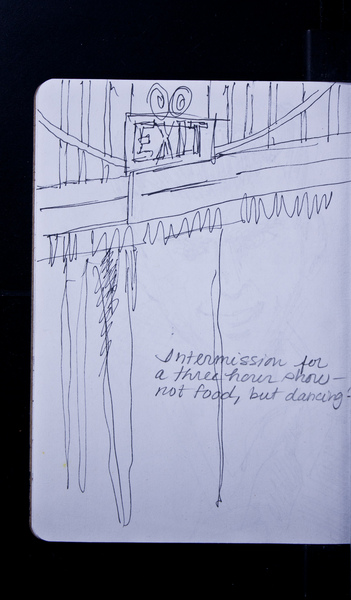 EXIT
Intermission for
a three hour show—
not food, but dancing?